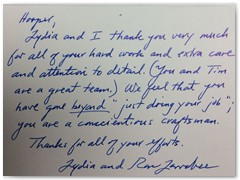 Hooper,
Lydia and I thank you very much
for all of your hard work and extra care
and attention to detail. (You and Tim
are a great team.) We feel that you
have gone beyond "just doing your job";
you are a conscientious craftsman.
Thanks for all of your efforts.
Lydia and Ron Zarrabee